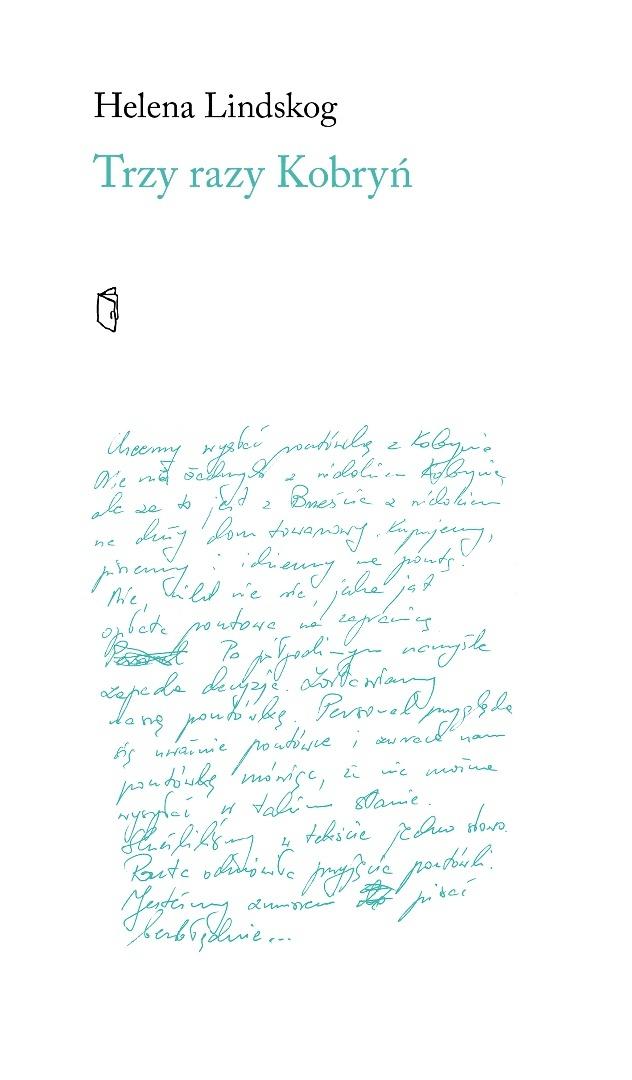 Helena Lindskog
Trzy razy Kobryń
Chcemy wysłać pocztówkę z Kobrynia
Nie ma żadnych z widokiem Kobrynia,
ale za to jest z Brześcia z widokiem
na duży dom towarowy. Kupujemy,
piszemy i idziemy na pocztę.
Nie, nikt nie wie, jaka jest
opłata pocztowa na zagranicę
Po półgodzinnym namyśle
zapada decyzja. Zostawiamy
naszą pocztówkę. Personel przygląda
się uważnie pocztówce i zwraca nam
pocztówkę mówiąc, że nie można
wysyłać w takim stanie.
Skreśliliśmy w tekście jedno słowo.
Poczta odmówiła przyjęcia pocztówki.
Jesteśmy zmuszeni pisać
bezbłędnie...